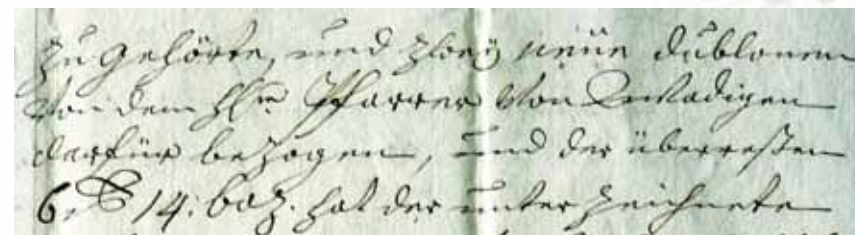 zu gehörte, und zweÿ neüe dublonen
von dem hhr. Pfarrer von
darfür bezogen, und der überresten
6 ₰ 14: baz. hat der unterzeichnete